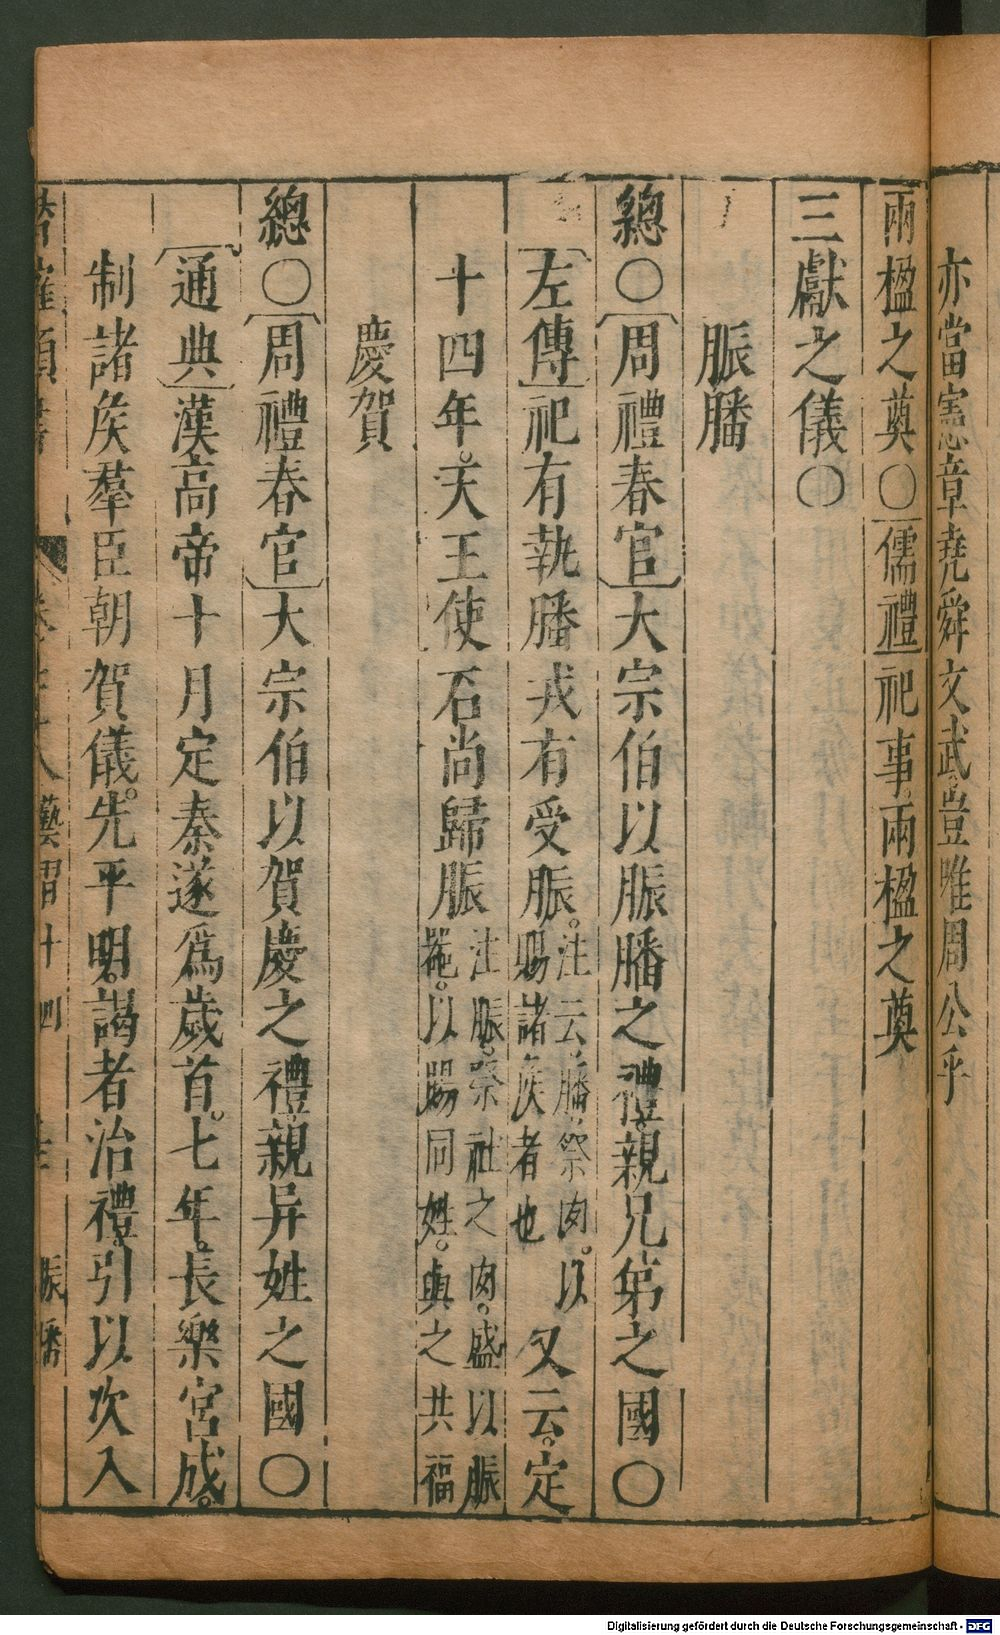 亦當憲章堯舜文武豈唯周公乎
兩楹之奠○儒禮祀事兩楹之奠
三獻之儀○
脤膰
總○周禮春官大宗伯以脤膰之禮親兄弟之國○
左傳祀有執膰戎有受脤。注云膰祭肉。以
賜諸侯者也
又云。定
十四年。天王使石尚歸脤注脤。祭社之肉。盛以脤
器。以賜同姓。與之共福
慶賀
總○周禮春官大宗伯以賀慶之禮親异姓之國○
通典漢高帝十月定秦遂爲歲首。七年。長樂宮成。
制諸侯羣臣朝賀儀。先平明。謁者治禮。引以次入
類書
藝習十四
脤膰
Digitalisierung gefördert durch die Deutsche Forschungsgemeinschaft - DFG